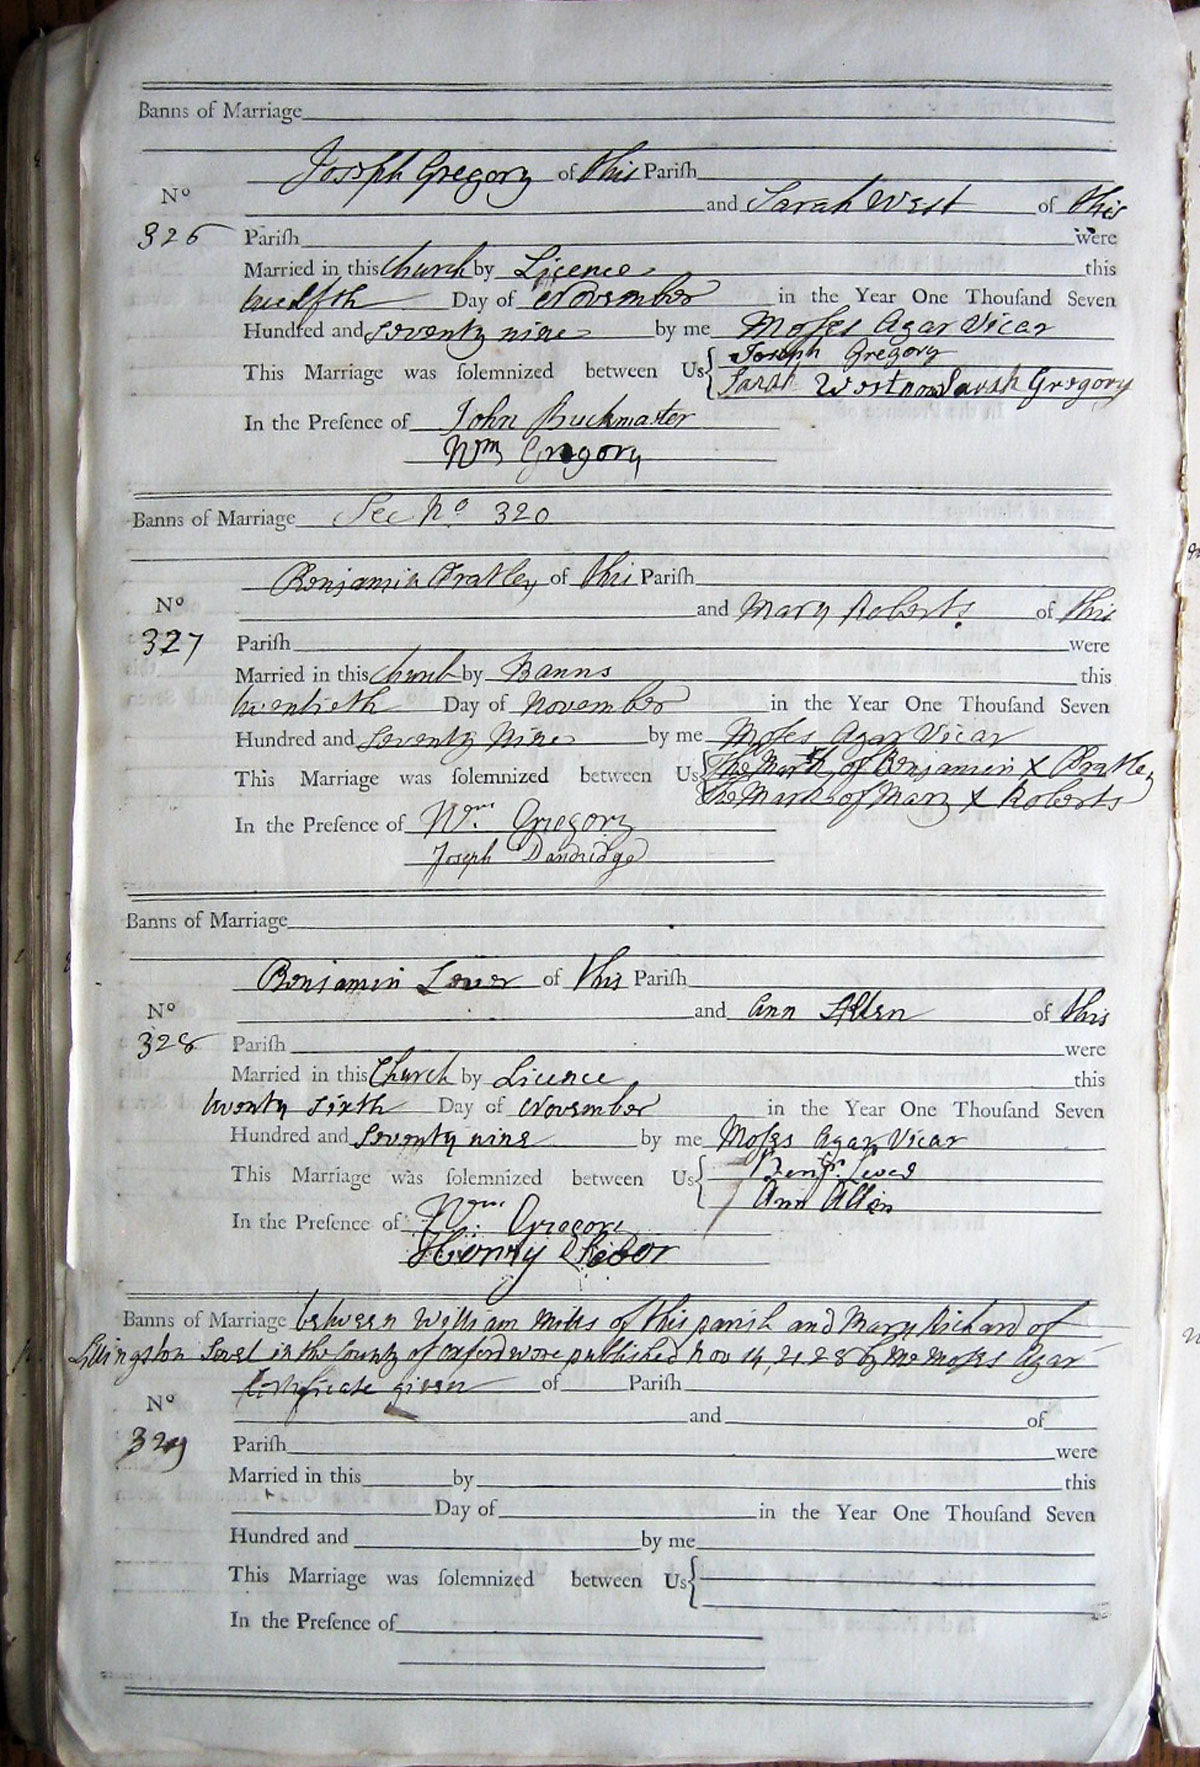 Banns of Marriage
Joseph Gregory of this Pariſh
No
and Sarah West of this
326 Pariſh were
Married in this Church by Licence this
twelfth Day of November in the Year One Thouſand Seven
Hundred and seventy nine by me Moſes Agar Vicar
Joseph Gregory
This Marriage was ſolemnized between Us
Sarah West now Sarah Gregory
In the Preſence of John Buckmaster
Wm Gregory
Banns of Marriage See No 320
Benjamin Pratley of this Pariſh
No
and Mary Roberts of this
327 Pariſh were
Married in this Church by Banns this
twentieth Day of November in the Year One Thouſand Seven
Hundred and Seventy Nine by me Moſes Agar Vicar
The Mark of Benjamin X Pratley
This Marriage was ſolemnized between Us
The Mark of Mary X Roberts
In the Preſence of Wm Gregory
Joseph Dandridge
Banns of Marriage
Benjamin of this Pariſh
No
and Ann Allen of this
328 Pariſh were
Married in this Church by Licence this
twenty sixth Day of November in the Year One Thouſand Seven
Hundred and Seventy nine by me Moſes Agar Vicar
Benjn.
This Marriage was ſolemnized between Us
Ann Allen
In the Preſence of Wm. Gregory
Henry
Banns of Marriage between William Mills of this parish and Mary Richard of
in the County of Oxford were published Nov 14, 21, 28 by me Moſes Agar
Certificate given of Pariſh
No
and of
329 Pariſh were
Married in this by this
Day of in the Year One Thouſand Seven
Hundred and by me
This Marriage was ſolemnized between Us
In the Preſence of